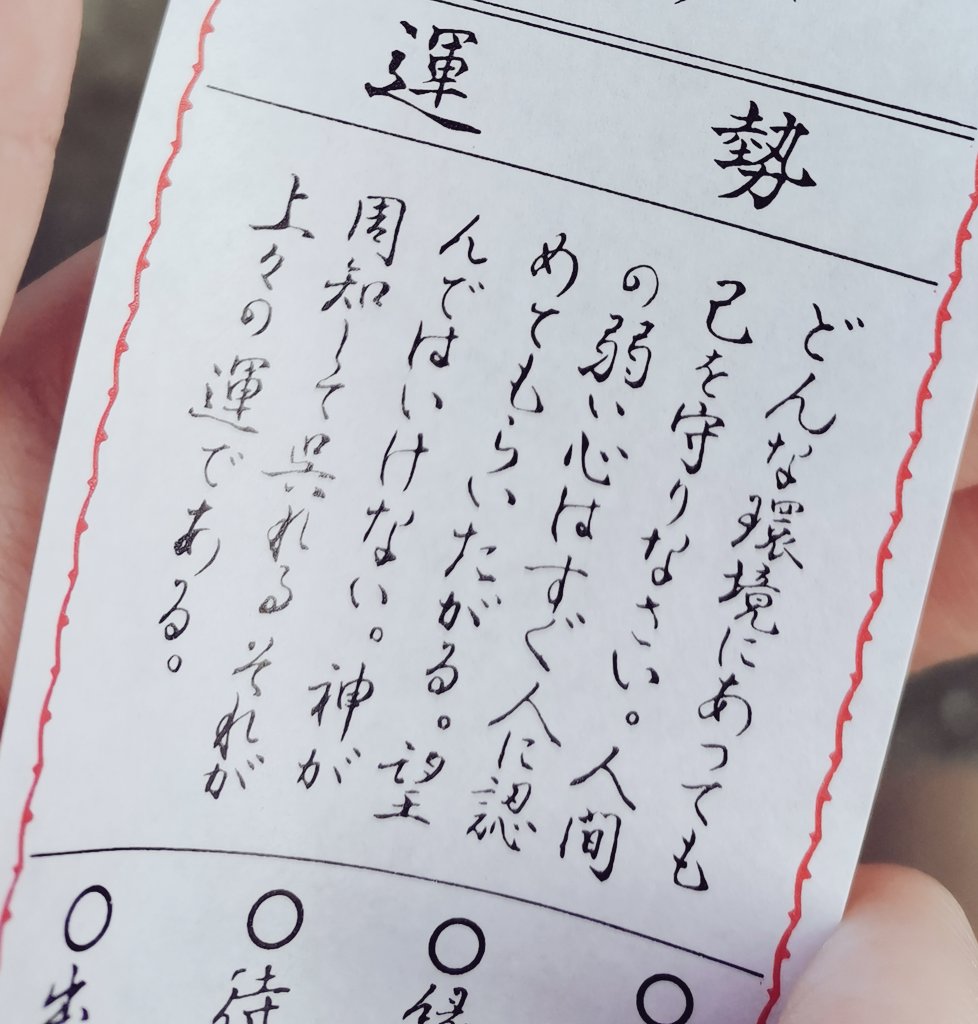 運勢
どんな環境にあっても
己を守りなさい。人間
の弱い心はすぐ人に認
めてもらいたがる。望
んではいけない。神が
周知して呉れるそれが
上々の運である。
○
○縁
○待
○出